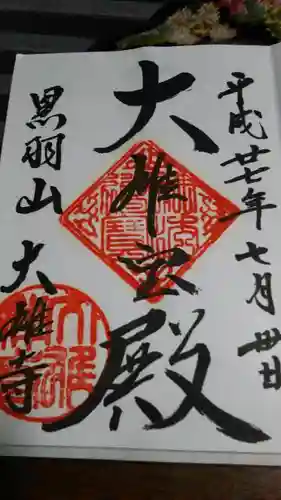 平成廿七年七月卅日
大雄宝殿
黒羽山 大雄寺